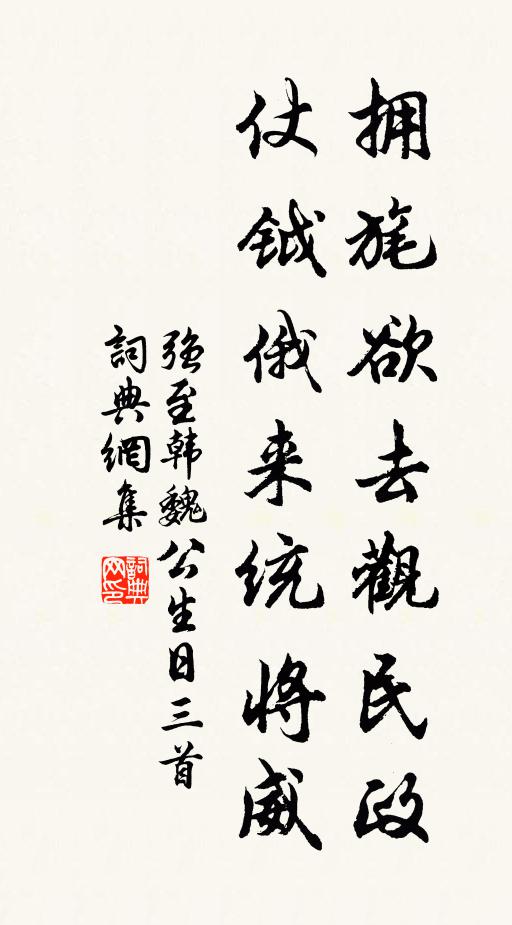 拥旄欲去觀民政
仗鉞俄来統將威
强至韩魏公生日三首
詞典網集
詞典网印